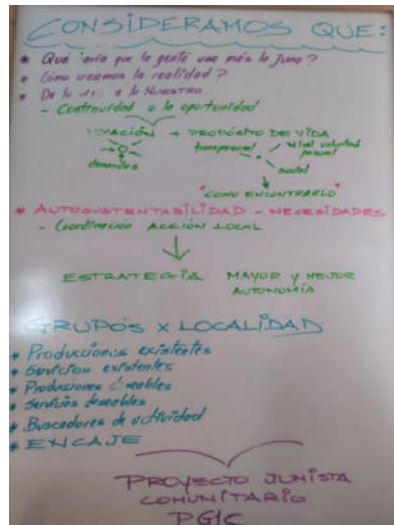 CONSIDERAMOS QUE:
* Qué haría que la gente use más la Juno?
* Cómo vemos la realidad?
* De lo a lo NUESTRO
- Continuidad o la oportunidad
VOCACIÓN → PROPÓSITO DE VIDA
transpersonal Nivel voluntad personal
demandas social
"CÓMO ENCONTRARLO"
* AUTOSUSTENTABILIDAD - NECESIDADES
- Coordinación ACCIÓN LOCAL
↓
ESTRATEGIA MAYOR y MEJOR
AUTONOMÍA
GRUPOS X LOCALIDAD
* Producciones existentes
* Servicios existentes
* Producciones deseables
* Servicios deseables
* Buscadores de actividad
* ENCAJE
PROYECTO JUNISTA
COMUNITARIO
PGIC